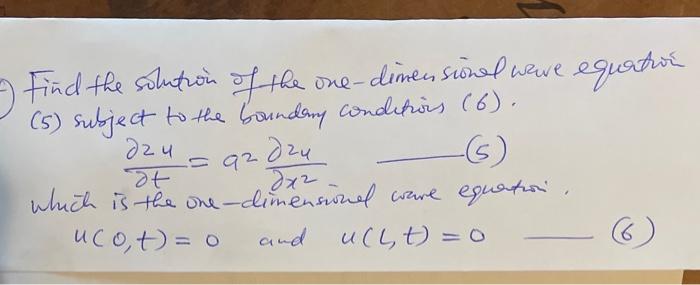 Find the solution of the one-dimensional wave equation
(5) subject to the boundary conditions (6).
∂2u/∂t = a2 ∂2u/∂x2 —— (5)
which is the one-dimensional wave equation.
u(0,t) = 0 and u(L,t) = 0 —— (6)